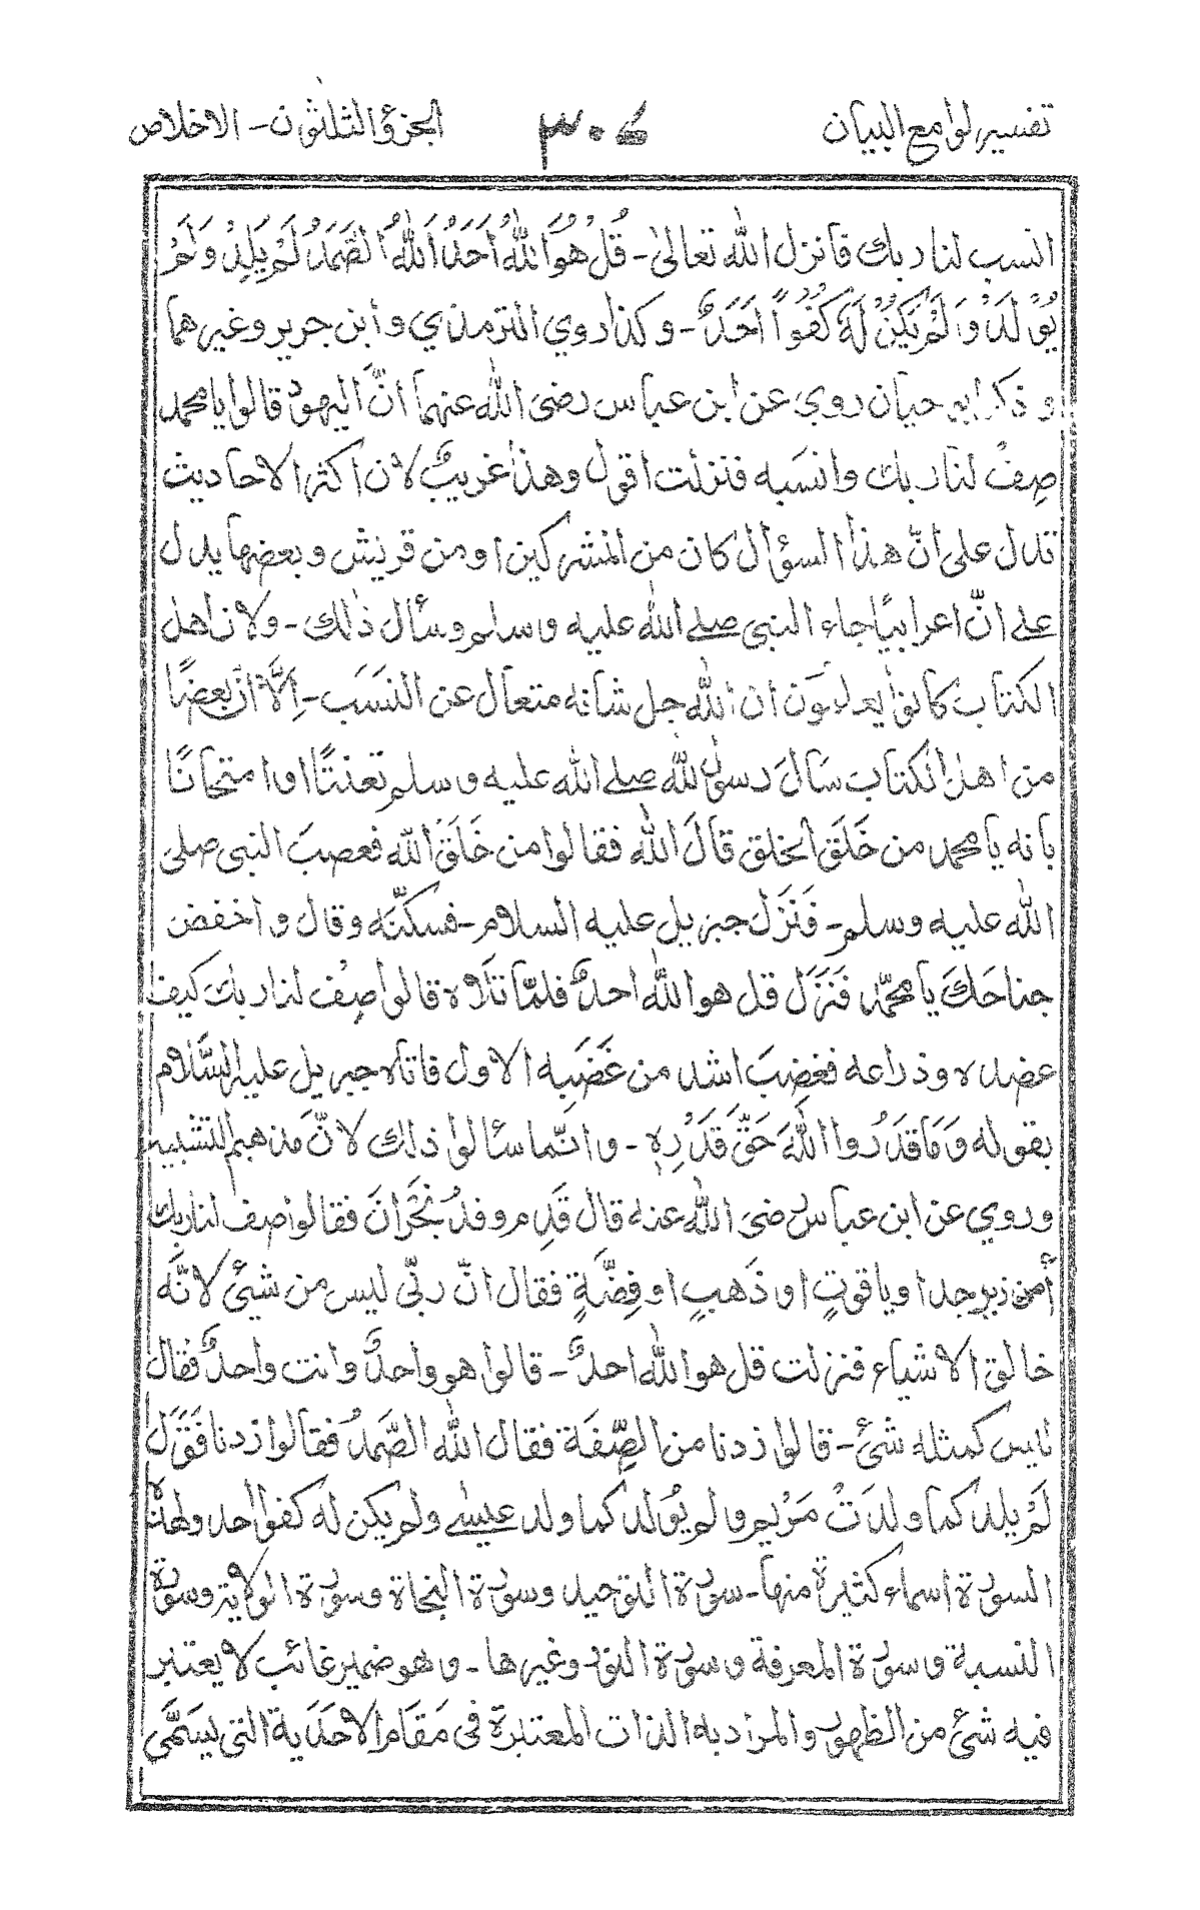 تفسير لوامع البيان ٣٠٤ الجزؤ الثلثون - الاخلاص
انسب لنا ربك فانزل الله تعالىٰ - قُلْ هُوَ اللّٰهُ اَحَدٌ اَللّٰهُ الصَّمَدُ لَمْ يَلِدْ وَلَمْ
يُوْلَدْ وَ لَمْ يَكُنْ لَّهٗ كُفُوًا اَحَدٌ - وكذا روي الترمذي وابن جرير وغيرهما
و ذكر ابو حيان روي عن ابن عباس رضى الله عنهما انّ اليهود قالوا يا محمد
صِفْ لنا ربك وانسَبه فنزلت اقول وهذا غريبٌ لان اكثر الاحاديث
تدل على انّ هذا السؤال كان من المشركين او من قريش وبعضها يدل
على انّ اعرابيًا جاء النبى صلے الله عليه وسلم وسأل ذٰلك - ولان اهل
الكتاب كانوا يعلمون ان الله جل شانه متعال عن النسَب - اِلَّا انّ بعضًا
من اهل الكتاب سَالَ رسول الله صلے الله عليه وسلم تعنتًا او امتحانًا
بانه يا محمد من خَلَق الخلق قالَ الله فقالوا من خَلَقَ الله فعصبَ النبى صلى
الله عليه وسلم - فَنَزَلَ جبريل عليه السلام - فسكّنه وقال واخفض
جناحَكَ يا محمّد فَنَزَلَ قل هو الله احدٌ فلمّا تلاه قالوا صِف لنا ربك كيف
عضده وذراعه فغضِبَ اشد من غَضَبِه الاول فاتاه جبريل عليه السَّلام
بقوله وَمَا قَدَرُوا اللّٰهَ حَقَّ قَدْرِهٖ - وانّما سألوا ذلك لانّ مذهبهم التشبيه
وروي عن ابن عباس رضىَ الله عنه قال قَدِم وفدُ نَجْرَانَ فقالوا صف لنا ربك
أمن زبرجد او ياقوتٍ او ذَهبٍ او فِضَّةٍ فقال انّ ربّى ليس من شئ لانَّه
خالق الاشياء فنزلت قل هو الله احدٌ - قالوا هو واحدٌ وانت واحدٌ فقال
ليس كمثله شئ - قالوا زدنا من الصِّفَة فقال الله الصَّمدُ فقالوا زدنا فَنَزَلَ
لَمْ يلد كما ولدَتْ مَرْيم ولم يُوْلد كما ولد عيسٰے ولم يكن له كفوا احد ولهذه
السورة اسماء كثيرة منها - سورة التوحيد وسورة النجاة وسورة الولاية وسورة
النسبة وسورة المعرفة وسورة النور وغيرها - وهو ضمير غائب لا يعتبر
فيه شئ من الظهور والمراد به الذات المعتبرة فى مَقَام الاحَدَية التى يسَمَّى